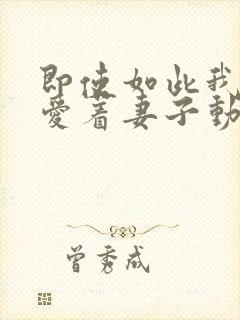 即使如此我
爱着妻子動
曾秀成